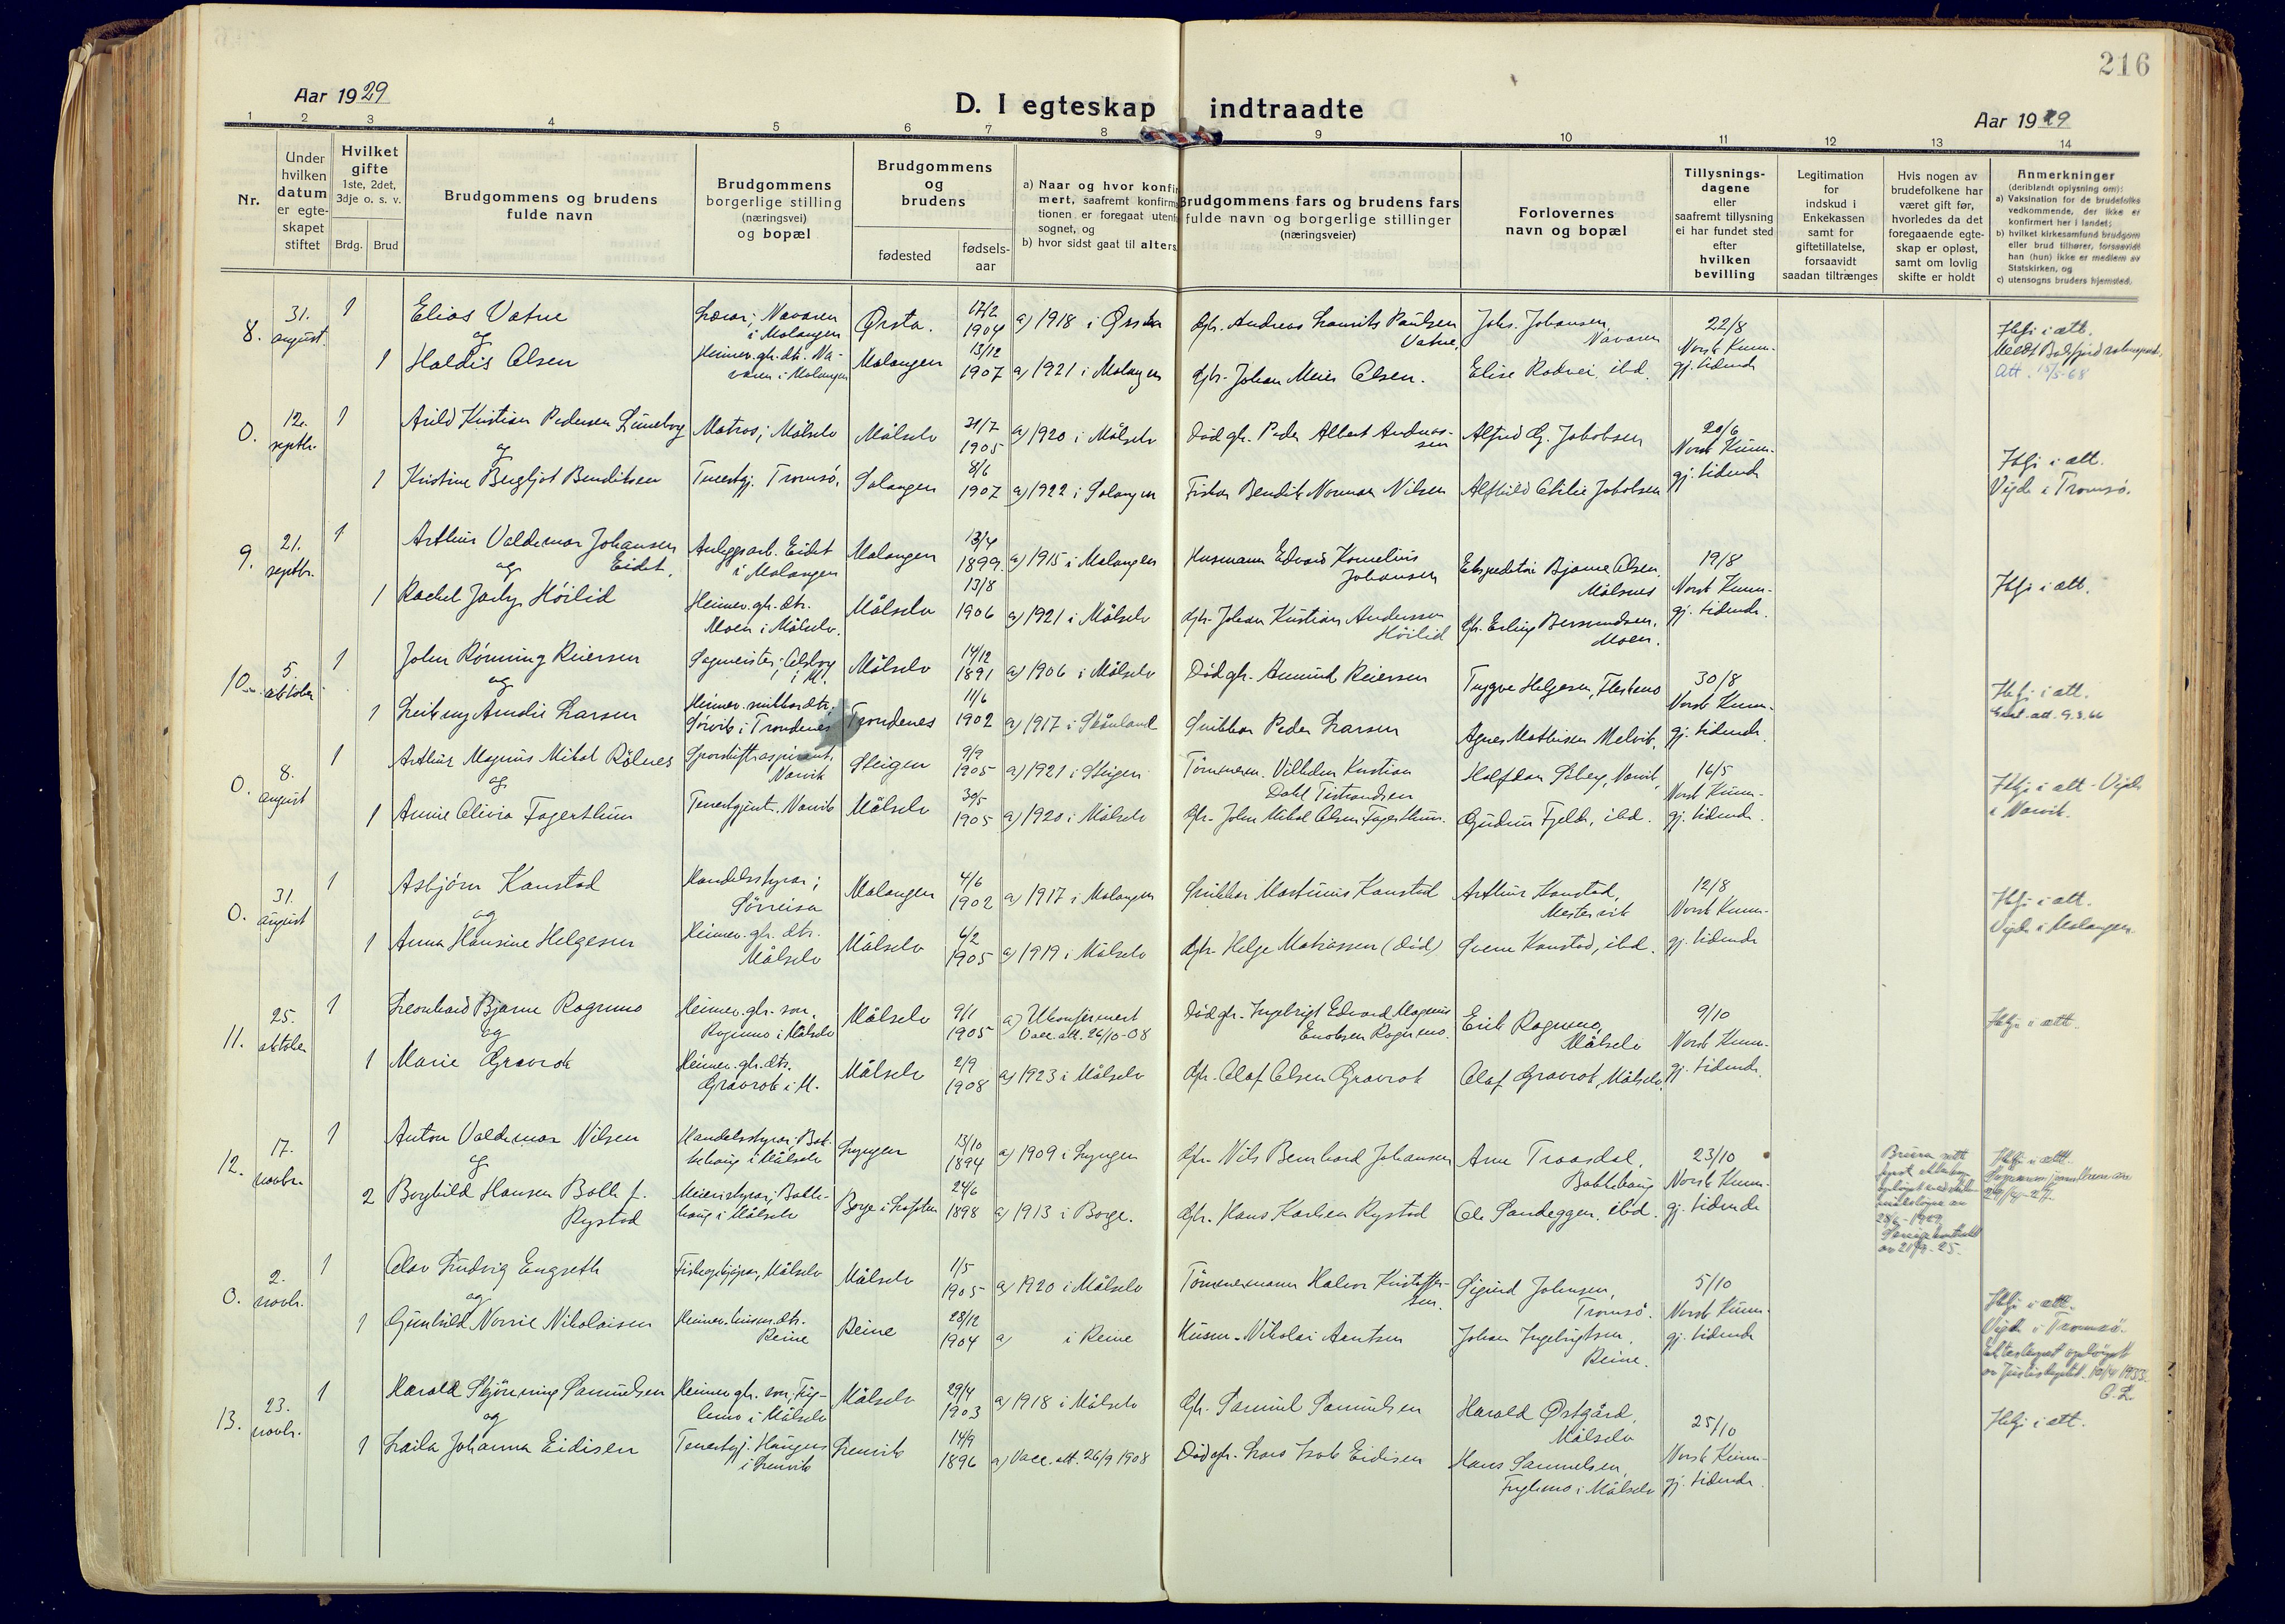 216
Aar 1929
D. I egteskap indtraadte
Aar 1929
1 2 3 4 5 6 7 8 9 10 11 12 13 14
Nr.
Under hvilken datum er egte-skapet stiftet
Hvilket gifte 1ste, 2det, 3dje o. s. v.
Brdg. Brud
Brudgommens og brudens fulde navn
Brudgommens borgerlige stilling (næringsvei) og bopæl
Brudgommens og brudens
fødested
fødsels-aar
a) Naar og hvor konfir
mert, saafremt konfirma
tionen er foregaat utenfo
sognet, og
b) hvor sidst gaat til alters
Brudgommens fars og brudens fars
fulde navn og borgerlige stillinger
(næringsveier)
Forlovernes
navn og bopæl
Tillysnings-
dagene
eller
saafremt tillysning
ei har fundet sted
efter
hvilken
bevilling
Legitimation
for
indskud i
Enkekassen
samt for
giftetillatelse,
forsaavidt
saadan tiltrænges
Hvis nogen av
brudefolkene har
været gift før,
hvorledes da det
foregaaende egte-
skap er opløst,
samt om lovlig
skifte er holdt
Anmerkninger
(deriblandt oplysning om):
a) Vaksination for de brudefolks
vedkommende, der ikke er
konfirmert her i landet;
b) hvilket kirkesamfund brudgom
eller brud tilhører, forsaavidt
han (hun) ikke er medlem av
Statskirken, og
c) utensogns bruders hjemsted.
8. 31. august. 1 Elias Vatne Lærar; Navaren i Malangen Ørsta. 17/2 1904 a) 1918 i Ørsta Gbr. Andreas Laurits Paulsen Vatne, Johs. Johansen, Navaren 22/8 Norsk Kunn-gj. tidende Hefj i att.
og
1 Haldis Olsen Heimev. gb. dtr. Na-varen i Malangen Malangen 13/12 1907 a) 1921 i Malangen Gbr. Johan Meier Olsen. Elise Rodvei, ibd. Att. 15/5-68
0. 12. septbr. 1 Arild Kristian Pedersen Lüneborg Matros; Målselv Målselv 31/7 1905 a) 1920 i Målselv Død gbr. Peder Albert Andreas-sen Alfred G. Jakobsen 20/6 Norsk Kunn-gj. tidende Hefj i att. Vigde i Tromsø.
og
1 Kristine Bergljot Benditsen Tenestgj. Tromsø. Salangen 8/6 1907 a) 1922 i Salangen Fiskar Bendik Norman Nilsen Alfhild Otilie Jakobsen
9. 21. septbr. 1 Arthur Valdemar Johansen Eidet, Anleggsarb. Eidet i Malangen Malangen 13/4 1899. a) 1915 i Malangen Husmann Edvard Kornelius Johansen Ekspeditør Bjarne Olsen, Målsnes 19/8 Norsk Kunn-gj. tidende. Hefj i att.
og
1 Rachel Høilid Heimev. gb. dtr. Moen i Målselv. Målselv 13/8 1906 a) 1921 i Målselv Gbr. Johan Kristian Andersson Høilid Gbr. Erling Bersvendsen, Moen.
10. 5. oktober 1 John Rønning Reiersen Sagmeister; Olsborg i M. Målselv 14/12 1891 a) 1906 i Målselv Død gbr. Amund Reiersen Trygve Helgesen, 30/8 Norsk Kunn-gj. tidende. Hefj i att.
og
1 Amalie Larsen Heimev. snikkardtr; Sørvik i Trondenes Trondenes 11/6 1902 a) 1917 i Skånland Snikkar Peder Larsen Agnes Mathisen Melvik,
0. 8. august 1 Arthur Magnus Mikal Rølnes Sporskiftaspirant, Narvik Steigen 9/9 1905 a) 1921 i Steigen Tømmerm. Vilhelm Kristian Dahl Tistrandsen Halfdan Soberg, Narvik, 16/5 Norsk Kunn-gj. tidende. Hefj i att. Vigde i Narvik.
og
1 Annie Olivia Fagerthun Tenestgjent. Narvik Målselv 30/5 1905 a) 1920 i Målselv Gbr. John Mikal Olsen Fagerthun. Gudrun Fjeld, ibd.
0. 31. august 1 Asbjørn Kanstad Handelsstyrar; Sørreisa Malangen 4/6 1902 a) 1917 i Malangen Snikkar Martinus Kanstad Arthur Kanstad, Mestervik 12/8 Norsk Kunn-gj. tidende Hefj i att. Vigde i Malangen.
og
1 Anna Hansine Helgesen Heimev. gb. dtr. Målselv Målselv 6/2 1905 a) 1919 i Målselv Gbr. Helge Matiassen (død) Svene Kanstad, ibd.
11. 25. oktober 1 Leonhard Bjarne Rognmo Heimev. gbr. son, Rognmo i Målselv Målselv 9/1 1905 a) Ukonfirmert Vacc. att. 26/10-08 Død gbr. Ingebrigt Edvard Magnus Enoksen Rognmo. Erik Rognmo, Målselv 9/10 Norsk Kunn-gj. tidende. Hefj i att.
og
1 Marie Gravrok Heimev. gb. dtr. Gravrok i M. Målselv 2/9 1908 a) 1923 i Målselv Gbr. Olaf Olsen Gravrok Olaf Gravrok, Målselv.
12. 17. novbr. 1 Anton Valdemar Nilsen Handelsstyrar; Bak-kehaug i Målselv Lyngen 13/10 1894 a) 1909 i Lyngen Gbr. Nils Bernhard Johansen Arne Traasdal, Bakkehaug 23/10 Norsk Kunn-gj. tidende Hefj i att.
og
2 Borghild Hansen Balk f. Rystad Meieristyrar; Bakke-haug i Målselv Borge i Lofoten 24/6 1898 a) 1913 i Borge. Gbr. Hans Karlsen Rystad Ole Sandeggen, ibd.
0. 2. novbr. 1 Olav Ludvig Engseth Målselv Målselv 1/5 1905 a) 1920 i Målselv Tømmermann Halvor Kristoffer-sen. Sigurd Johnsen, Tromsø. 5/10 Norsk Kunn-gj. tidende Hefj i att. Vigde i Tromsø.
og
1 Gunhild Norrie Nikolaisen Heimev. husm. dtr. Reine Reine 28/12 1904 a) i Reine Husm. Nikolai Arntsen Johan Ingebrigtsen, Reine.
13. 23. novbr. 1 Harald Skjønning Samuelsen Heimev. gb. son, Fug-lemo i Målselv Målselv 29/4 1903 a) 1918 i Målselv Gbr. Samuel Samuelsen Harald Østgård, Målselv 25/10 Norsk Kunn-gj. tidende. Hefj i att.
og
1 Laila Johanna Eidisen Tenestgj. Haugen i Lenvik Lenvik 14/9 1896 a) Vacc. att. 26/9 1908 Død gbr. Lars Isak Eidisen Hans Samuelsen, Fuglemo i Målselv